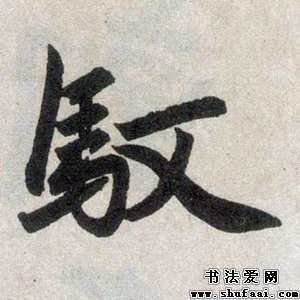 馭
书法爱网
www.shufaai.com